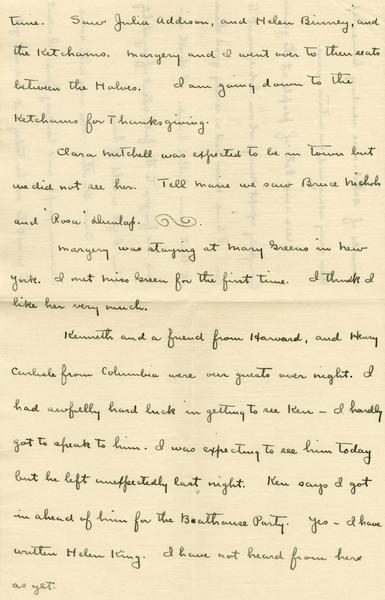 time. Saw Julia Addison, and Helen Binney, and
the Ketchams. Margery and I went over to their seats
between the Halves. I am going down to the
Ketchams for Thanksgiving.
Clara Mitchell was expected to be in town but
we did not see her. Tell Marie we saw Bruce Nichols
and "Rosa" Dunlap.
Margery was staying at Mary Greens in New
York. I met Miss Green for the first time. I think I
like her very much.
Kenneth and a friend from Harvard, and Henry
Carlisle from Columbia were our guests over night. I
had awfully hard luck in getting to see Ken - I hardly
got to speak to him. I was expecting to see him today
but he left unexpectedly last night. Ken says I got
in ahead of him for the Boathouse Party. Yes - I have
written Helen King. I have not heard from here
as yet.